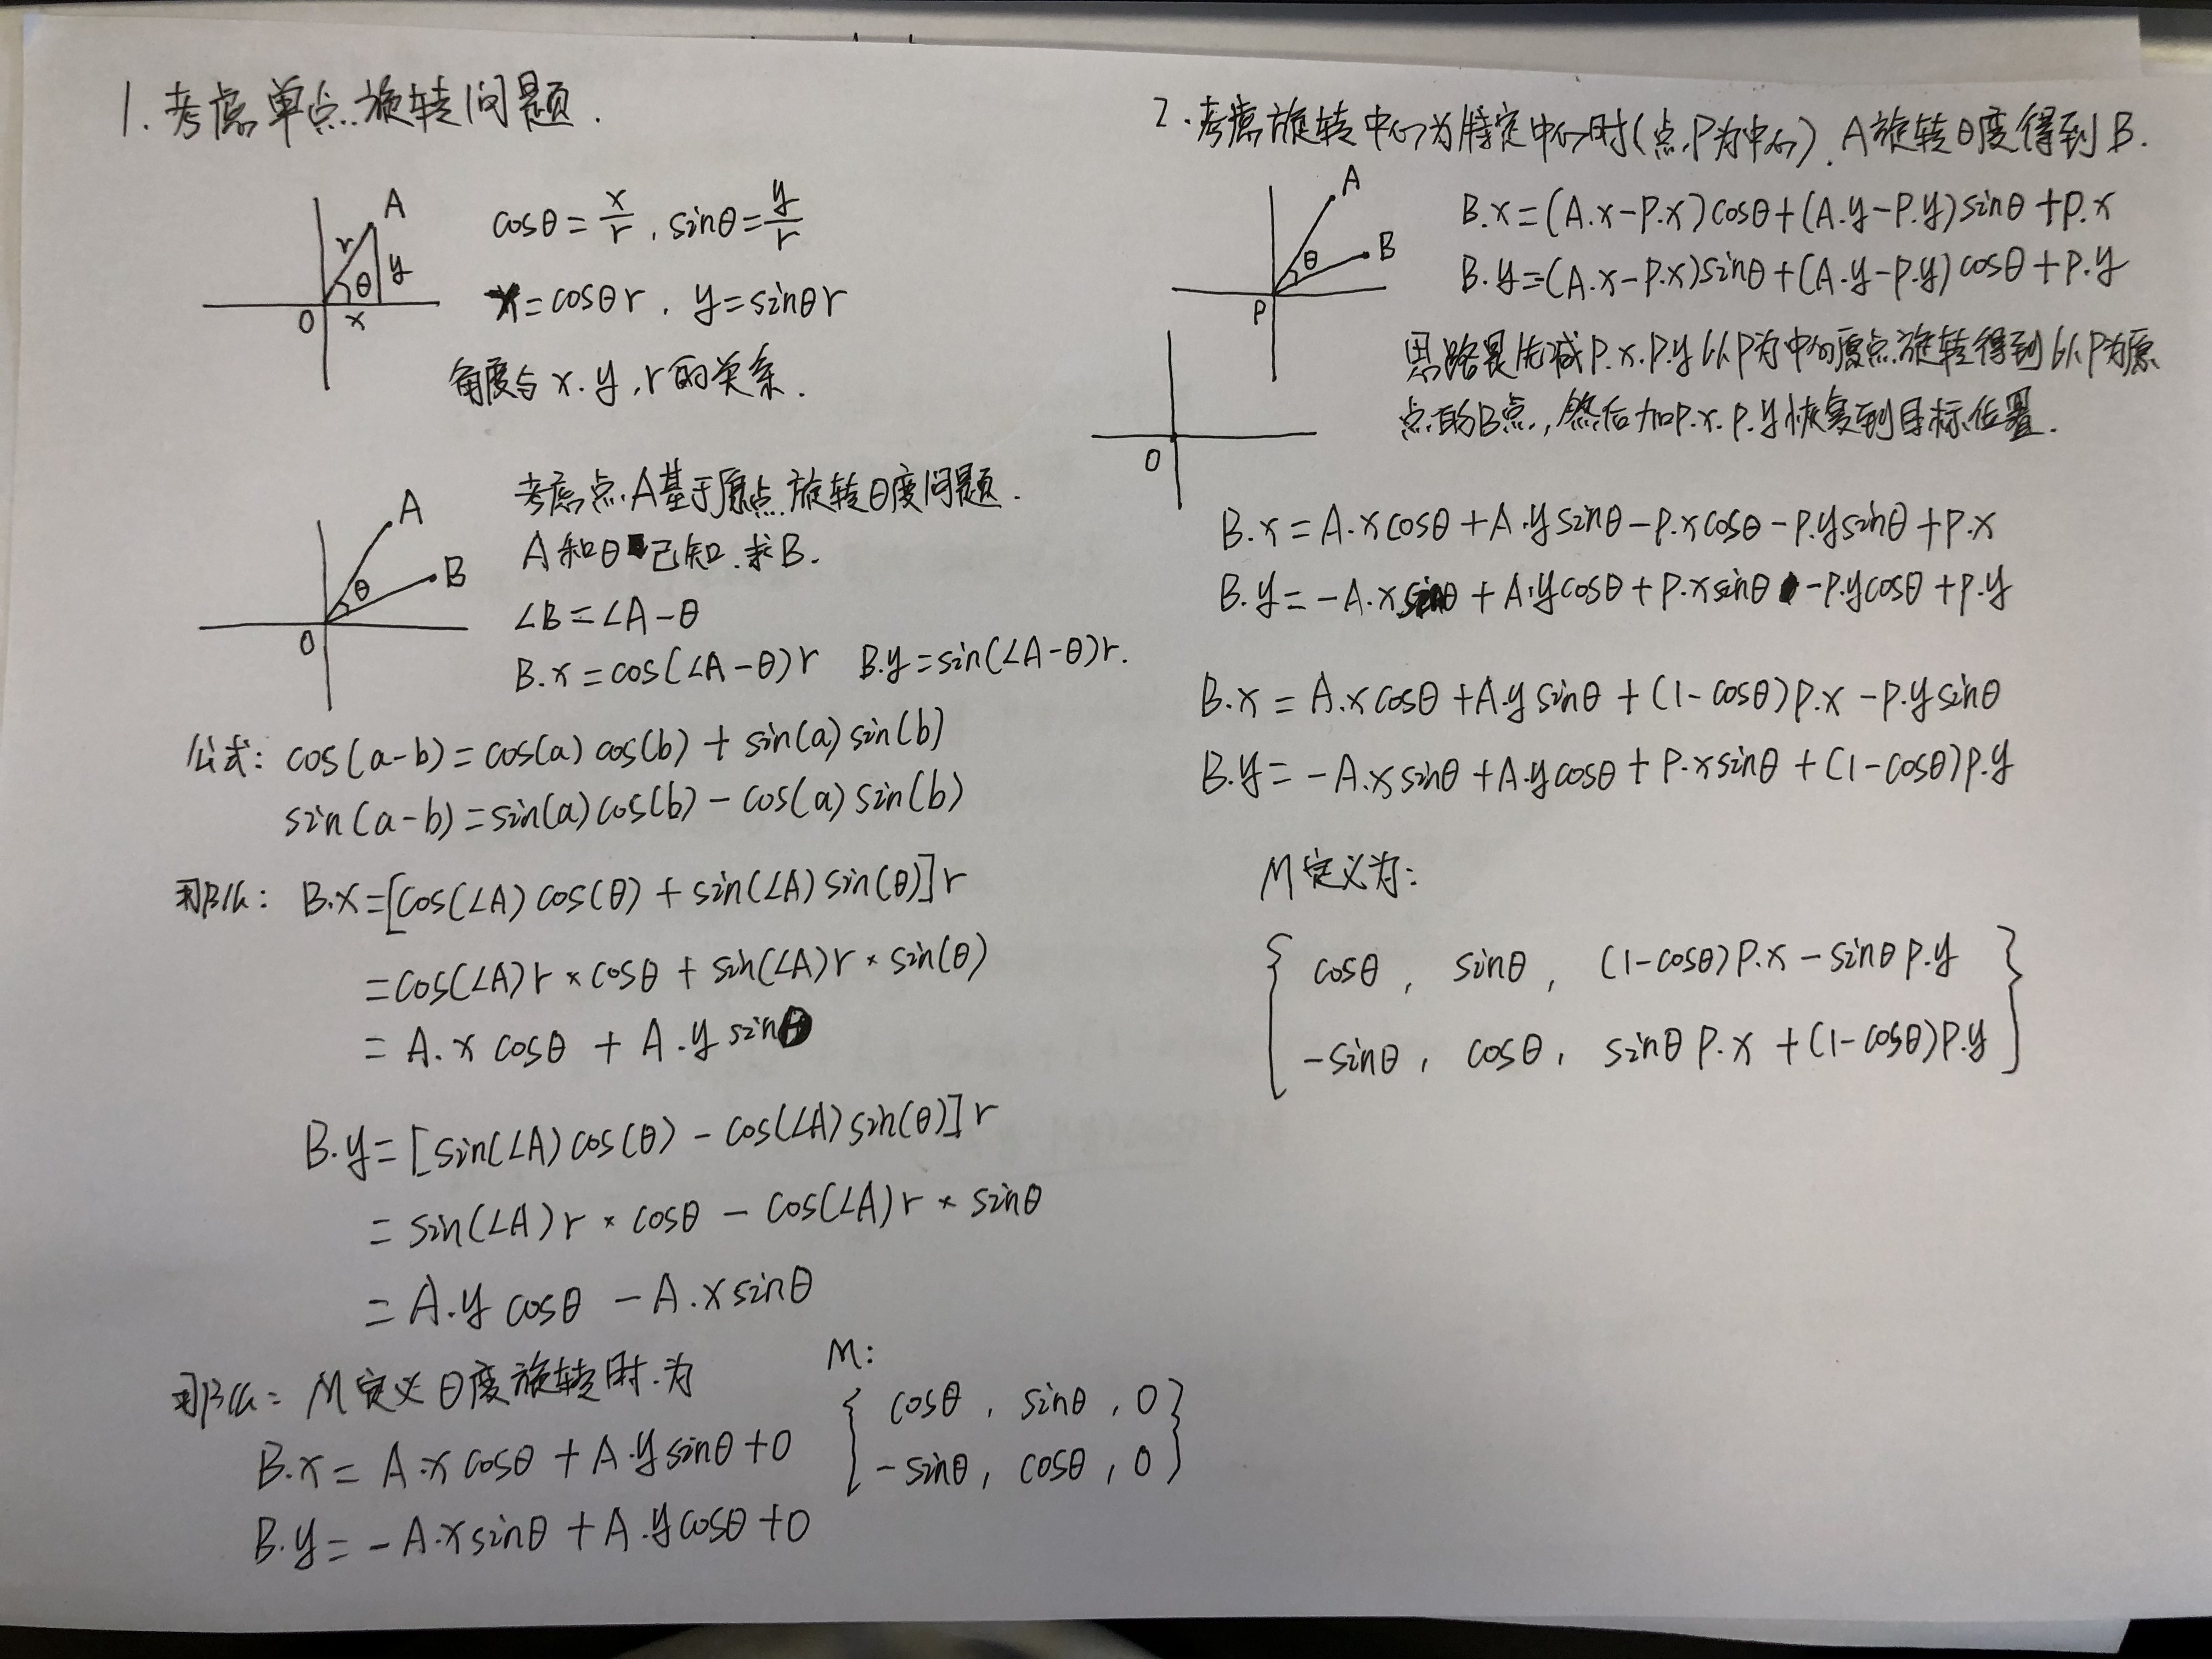 1.考虑单点旋转问题.
A
r
y
θ
O
x
cosθ=x/r, sinθ=y/r
x=cosθr, y=sinθr
角度与x.y,r的关系.
A
B
θ
O
考虑点A基于原点旋转θ度问题.
A和θ已知.求B.
∠B=∠A-θ
B.x=cos(∠A-θ)r B.y=sin(∠A-θ)r.
公式: cos(a-b)=cos(a)cos(b)+sin(a)sin(b)
sin(a-b)=sin(a)cos(b)-cos(a)sin(b)
那么: B.x=[cos(∠A)cos(θ)+sin(∠A)sin(θ)]r
=cos(∠A)r×cosθ+sin(∠A)r×sin(θ)
=A.x cosθ+A.y sinθ
B.y=[sin(∠A)cos(θ)-cos(∠A)sin(θ)]r
=sin(∠A)r×cosθ-cos(∠A)r×sinθ
=A.y cosθ-A.x sinθ
那么: M定义θ度旋转时.为
B.x=A.x cosθ+A.y sinθ+0
B.y=-A.x sinθ+A.y cosθ+0
M:
{cosθ, sinθ, 0
-sinθ, cosθ, 0}
2.考虑旋转中心为特定中心时(点P为中心).A旋转θ度得到B.
A
B
θ
P
O
B.x=(A.x-P.x)cosθ+(A.y-P.y)sinθ+P.x
B.y=-(A.x-P.x)sinθ+(A.y-P.y)cosθ+P.y
思路是先减P.x.P.y以P为中心原点旋转得到以P为原
点的B点,然后加P.x.P.y恢复到目标位置.
B.x=A.x cosθ+A.y sinθ-P.x cosθ-P.y sinθ+P.x
B.y=-A.x sinθ+A.y cosθ+P.x sinθ-P.y cosθ+P.y
B.x=A.x cosθ+A.y sinθ+(1-cosθ)P.x-P.y sinθ
B.y=-A.x sinθ+A.y cosθ+P.x sinθ+(1-cosθ)P.y
M定义为:
{cosθ, sinθ, (1-cosθ)P.x-sinθP.y
-sinθ, cosθ, sinθP.x+(1-cosθ)P.y}